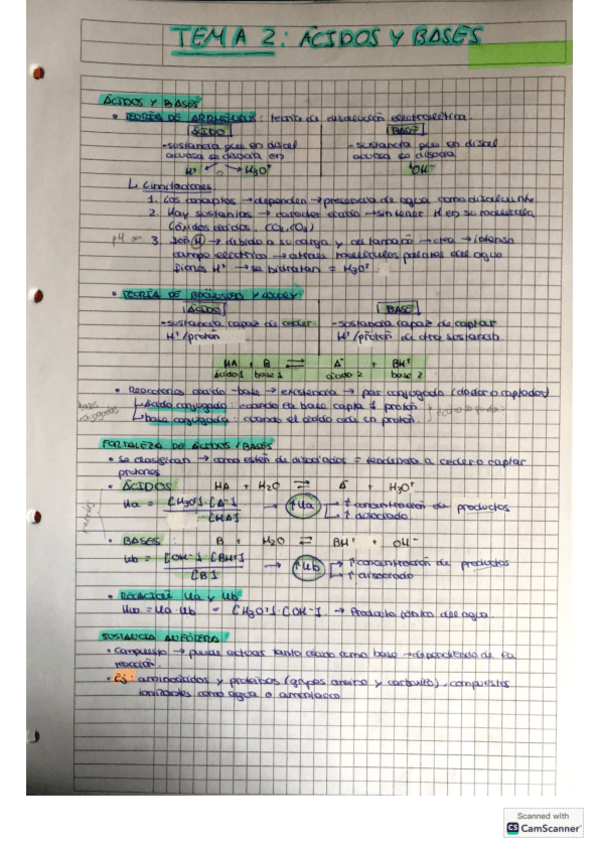 TEMA 2: ÁCIDOS Y BASES
ÁCIDOS Y BASES
• TEORÍA DE ARRHENIUS: teoría de disociación electrolítica.
ÁCIDO BASE
-sustancia que en disol -sustancia que en disol
acuosa se disocia en acuosa se disocia
H⁺ H₃O⁺ OH⁻
Limitaciones
1. Los conceptos → dependen → presencia de agua como disolvente
2. Hay sustancias → carácter ácido → sin tener H en su molécula
(óxidos ácidos.
3. Ion H → debido a su carga y tamaño → crea → intenso
campo eléctrico → atrae moléculas polares del agua
H⁺ → se hidratan = H₃O⁺
• TEORÍA DE BRÖNSTED Y LOWRY
ÁCIDO BASE
-sustancia capaz de ceder -sustancia capaz de captar
H⁺/protón H⁺/protón de otra sustancia
HA + B ⇌ A⁻ + BH⁺
ácido 1 base 1 ácido 2 base 2
• Reacciones ácido-base → existencia → par conjugado (dador o captador)
ácido conjugado: cuando la base capta 1 protón
base conjugada: cuando el ácido cede un protón.
FORTALEZA DE ÁCIDOS/BASES
• Se clasifican → como estén de disociados = tendencia a ceder o captar
protones
• ÁCIDOS HA + H₂O ⇌ A⁻ + H₃O⁺
Ka = [H₃O⁺].[A⁻] → ↑Ka ↑ concentración de productos
[HA] ↑ disociado
• BASES: B + H₂O ⇌ BH⁺ + OH⁻
Kb = [OH⁻].[BH⁺] → ↑Kb ↑ concentración de productos
[B] ↑ disociado
• RELACIÓN Ka y Kb
Kw = Ka·Kb = [H₃O⁺].[OH⁻]. → Producto iónico del agua.
SUSTANCIA ANFÓTERA
• Compuesto → puede actuar tanto ácido como base → dependiendo de la
reacción.
• Ej: aminoácidos y proteínas (grupos amino y carboxilo), compuestos
ionizables como agua o amoniaco
Scanned with
CS CamScanner